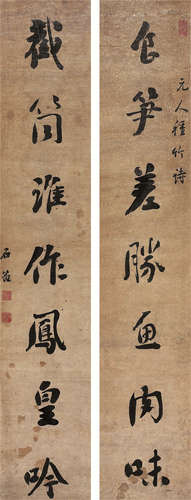 元人種竹詩
食笋差勝魚肉味
截筒誰作鳳皇吟
石菴